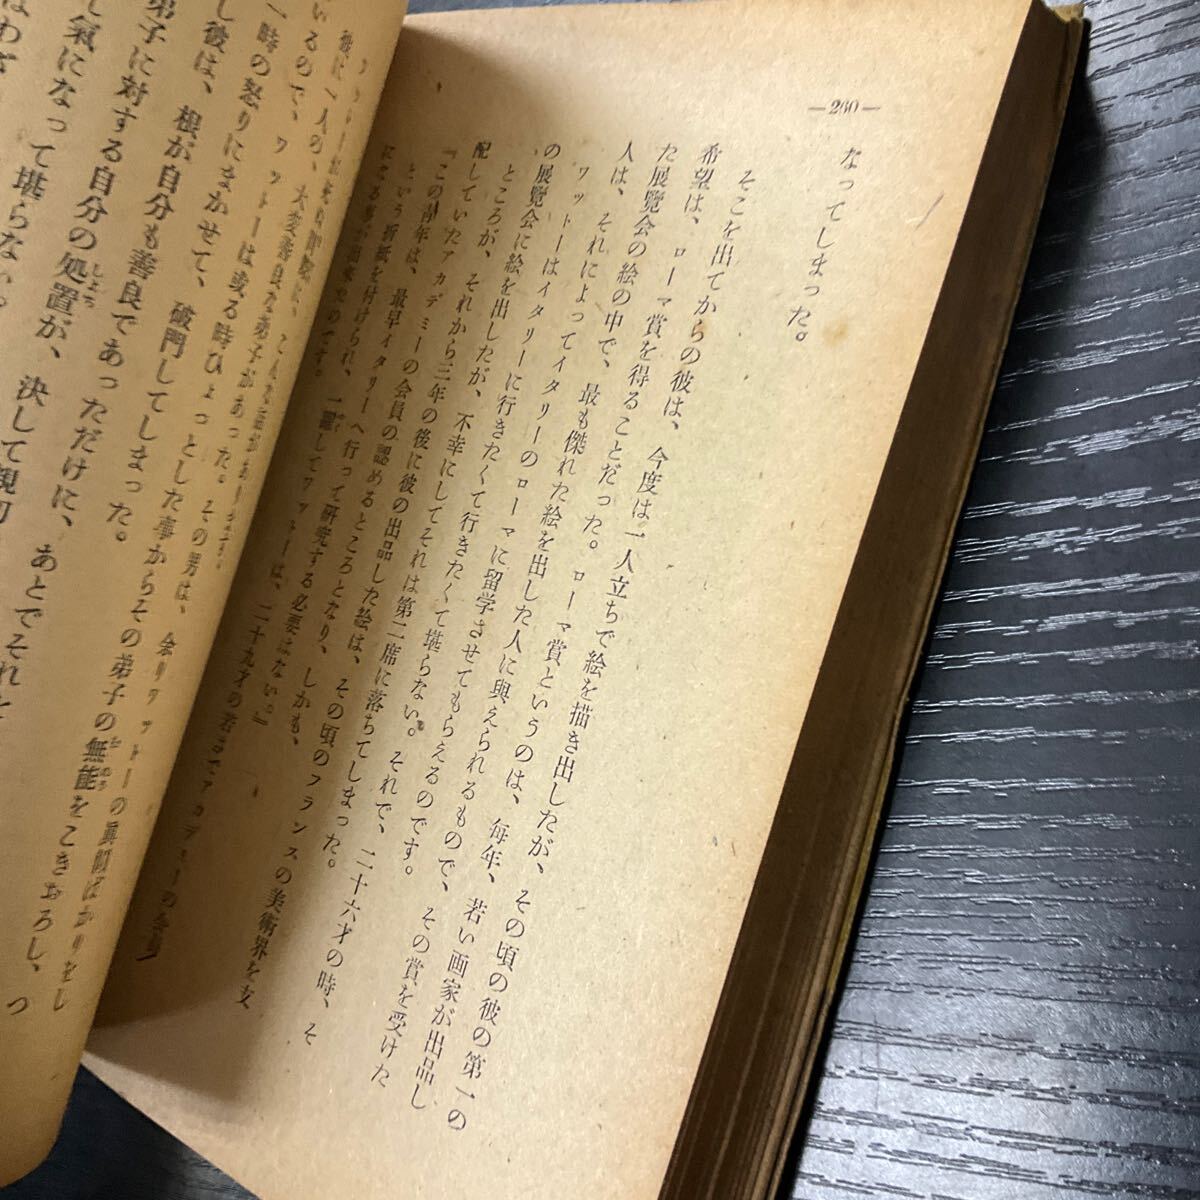 —260—
なってしまった。
そこを出てからの彼は、今度は一人立ちで絵を描き出したが、その頃の彼の第一の
希望は、ローマ賞を得ることだった。ローマ賞というのは、毎年、若い画家が出品し
た展覧会の絵の中で、最も傑れた絵を出した人に與えられるもので、その賞を受けた
人は、それによってイタリーのローマに留学させてもらえるのです。
ワットーはイタリーに行きたくて行きたくて堪らない。それで、二十六才の時、そ
の展覧会に絵を出したが、不幸にしてそれは第二席に落ちてしまった。
ところが、それから三年の後に彼の出品した絵は、その頃のフランスの美術界を支
配していたアカデミーの会員の認めるところとなり、しかも、
『この青年は、最早イタリーへ行って研究する必要はない。』
という折紙を付けられ、一躍してワットーは、二十九才の若さでアカデミーの会員
になる事が出来たのです。
彼に一人の、大変善良な弟子があった。その男は、余りワットーの真似ばかりをし
いるので、ワットーは或る時ひょっとした事からその弟子の無能をこきおろし、つ
一時の怒りにまかせて、破門してしまった。
し彼は、根が自分も善良であっただけに、あとでそれを
弟子に対する自分の処置が、決して親切
し氣になって堪らない